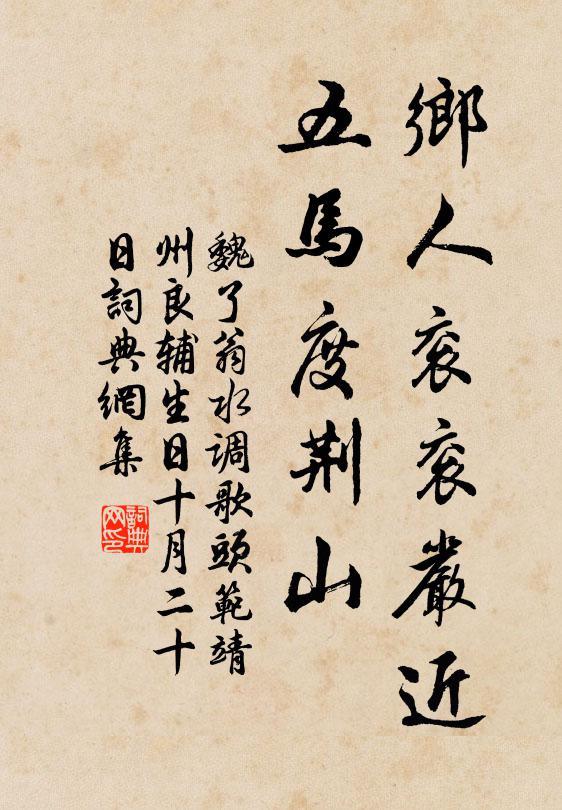 鄉人衮衮嚴近
五馬度荆山
魏了翁水调歌頭範靖
州良辅生日十月二十
日詞典網集
詞典网印